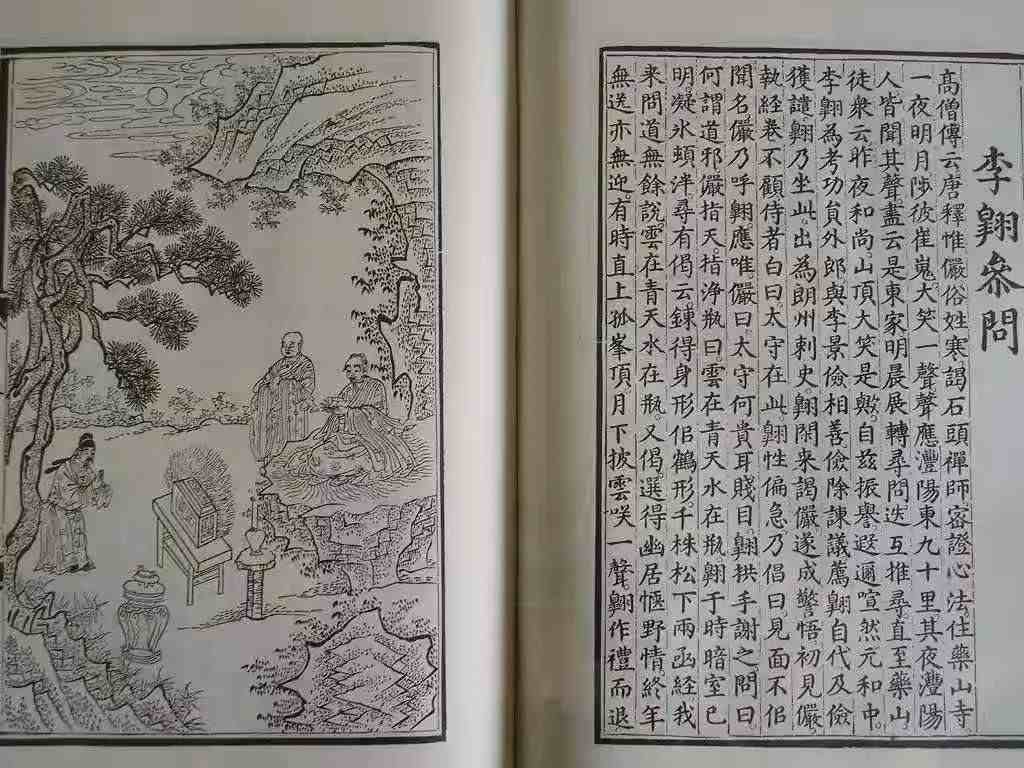 李翱叅問
高僧傳云唐釋惟儼俗姓寒謁石頭禪師密證心法住藥山寺
一夜明月陟彼崔嵬大笑一聲聲應灃陽東九十里其夜灃陽
人皆聞其聲盡云是東家明晨展轉尋問迭互推尋直至藥山
徒衆云昨夜和尚山頂大笑是歟自茲振譽遐邇喧然元和中
李翱為考功貟外郎與李景儉相善儉除諫議薦翱自代及儉
獲譴翱乃坐此出為朗州刺史翱閑来謁儼遂成警悟初見儼
執經卷不顧侍者白曰太守在此翱性偏急乃倡曰見面不佀
聞名儼乃呼翱應唯儼曰太守何貴耳賤目翱拱手謝之問曰
何謂道邪儼指天指浄瓶曰雲在青天水在瓶翱于時暗室已
明疑氷頓泮尋有偈云鍊得身形佀鶴形千株松下兩函經我
来問道無餘說雲在青天水在瓶又偈選得幽居愜野情終年
無送亦無迎有時直上孤峯頂月下披雲咲一聲翱作禮而退